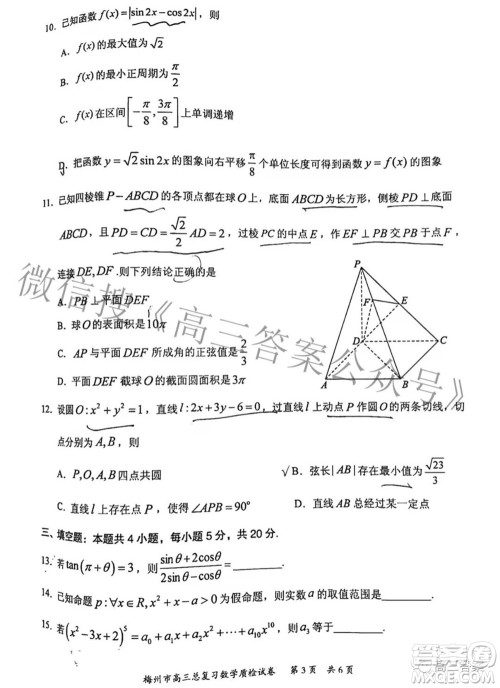 10. 已知函数 f(x)=|sin2x−cos2x|，则
A．f(x)的最大值为√2
B．f(x)的最小正周期为π/2
C．f(x)在区间[−π/8, 3π/8]上单调递增
D．把函数 y=√2 sin2x 的图象向右平移 π/8 个单位长度可得到函数 f(x) 的图象
11. 已知四棱锥 P−ABCD 的各顶点都在球 O 上，底面 ABCD 为长方形，侧棱 PD⊥底面
ABCD，且 PD=CD=√2/2 AD=2，过棱 PC 的中点 E，作 EF⊥PB 交 PB 于点 F，
连接 DE, DF.则下列结论正确的是
A．PB⊥平面DEF
B．球O的表面积是10π
C．PA与平面 DEF 所成角的正弦值是 2/3
D．平面 DEF 截球O的截面面积是3π
P
F
E
D
C
A
B
12. 设圆O:x²+y²=1，直线 l:2x+3y−6=0，过直线 l 上动点 P 作圆O的两条切线，切
点分别为 A,B，则
A．P,O,A,B四点共圆
√B．弦长|AB|存在最小值为√23/3
C．直线 l 上存在点 P，使得∠APB=90°
D．直线 AB 总经过某一定点
三、填空题：本题共 4 小题，每小题 5 分，共 20 分．
13. 若 tan(π+θ)=3，则 (sinθ+2cosθ)/(2sinθ−cosθ)=
14. 已知命题 p:∀x∈R, x²−2x−a>0 为假命题，则实数 a 的取值范围是
15. 若(x²−3x+2)⁵=a₀+a₁x+a₂x²+…+a₁₀x¹⁰，则
梅州市高三总复习数学质检试卷 第 3 页 共 6 页
微信搜《高三答案公众号》
高三答案